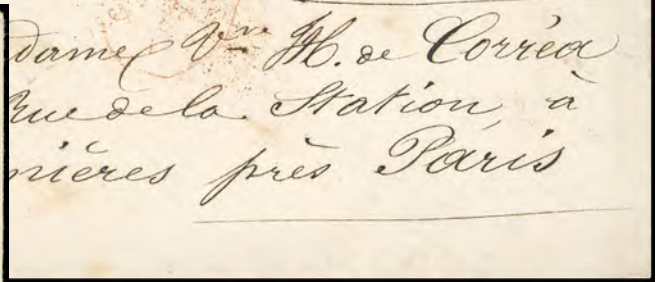 dame Vve H. de Corrêa
Rue de la Station, à
nières près Paris